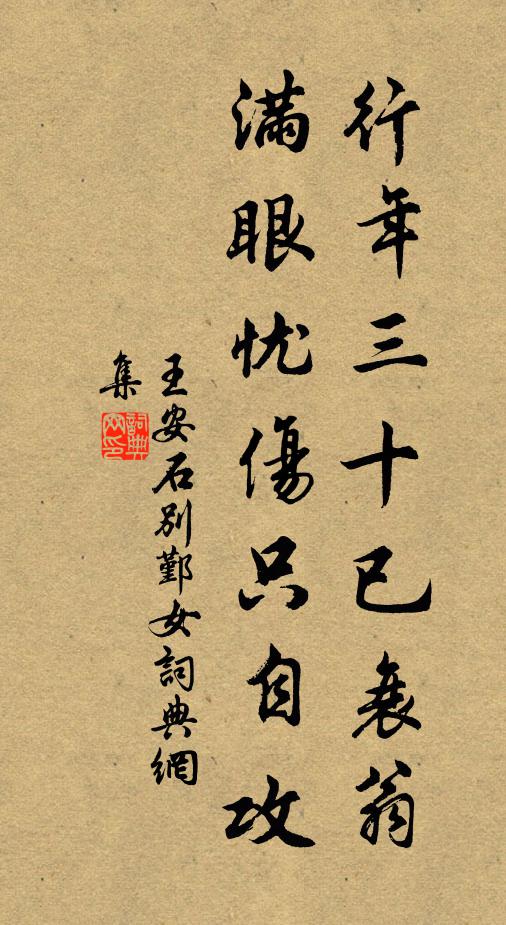 行年三十已衰翁
滿眼忧傷只自攻
王安石别鄞女詞典網
集
詞典網印